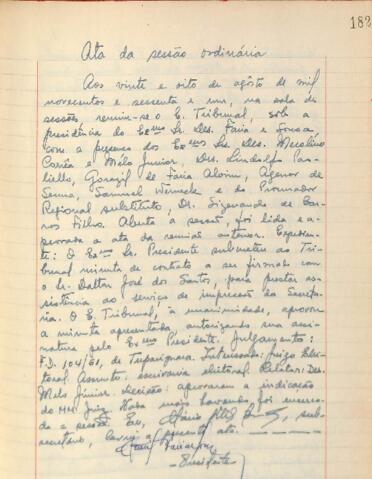 182
Ata da sessão ordinária
Aos vinte e oito de agôsto de mil
novecentos e sessenta e um, na sala de
sessões, reuniu-se o E. Tribunal, sob a
presidência do Exmo Sr. Des. Faria e Sousa,
com a presença dos Exmos Srs. Des. Merolino
Corrêa e Mélo Júnior, Drs. Lindolfo Pa-
liello, Gorazil de Faria Alvim, Agenor de
Senna, Samuel Werneck e do Procurador
Regional substituto, Dr. Sizenando de Bar-
ros Filho. Aberta a sessão, foi lida e a-
provada a ata da reunião anterior. Expedien-
te: O Exmo Sr. Presidente submeteu ao Tri-
bunal minuta de contrato a ser firmado com
o Sr. Dalton José dos Santos, para prestar as-
sistência ao serviço de impressão da Secreta-
ria. O E. Tribunal, à unanimidade, aprovou
a minuta apresentada, autorizando sua assi-
natura pelo Exmo Presidente. Julgamento:
F.D. 104/61, de Tupaciguara. Interessado: Juízo Elei-
toral. Assunto: escrivania eleitoral. Relator: Des.
Mélo Júnior. Decisão: aprovaram a indicação
do MM. Juiz. Nada mais havendo, foi encerra-
da a sessão. Eu, sub-
secretário, lavrei a presente ata.
Presidente